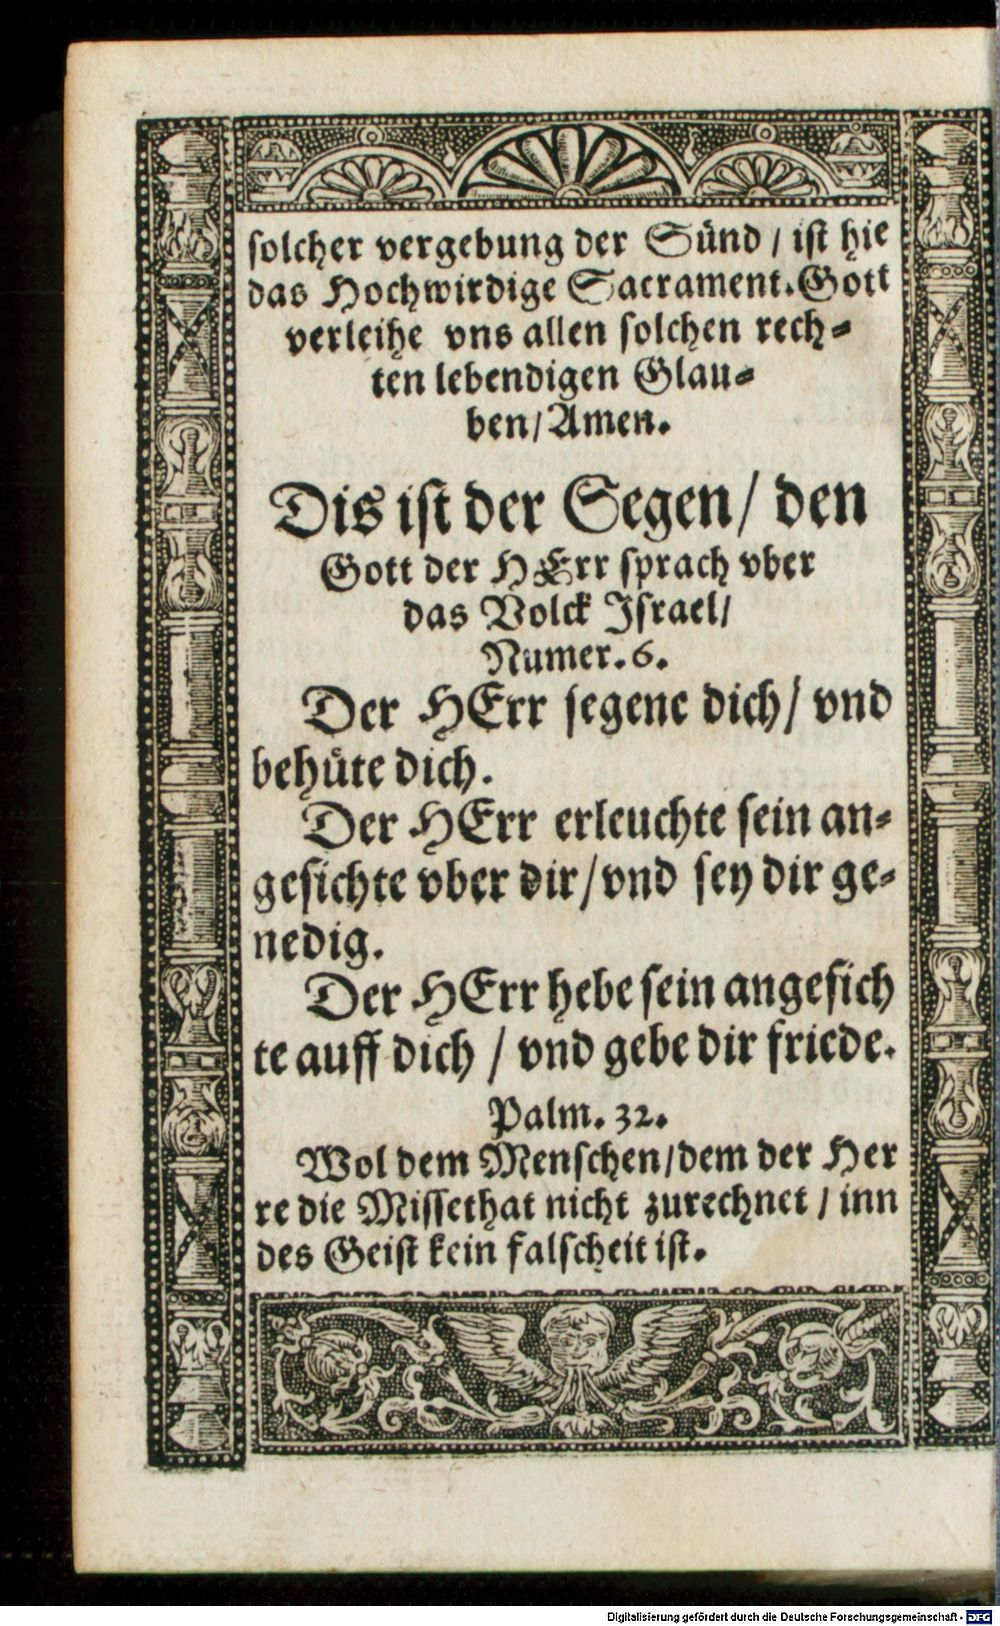 solcher vergebung der Sünd / ist hie
das Hochwirdige Sacrament. Gott
verleihe vns allen solchen rech-
ten lebendigen Glau-
ben / Amen.
Dis ist der Segen / den
Gott der HErr sprach vber
das Volck Israel /
Numer. 6.
Der HErr segene dich / vnd
behüte dich.
Der HErr erleuchte sein an-
gesichte vber dir / vnd sey dir ge-
nedig.
Der HErr hebe sein angesich
te auff dich / vnd gebe dir friede.
Palm. 32.
Wol dem Menschen / dem der Her
re die Missethat nicht zurechnet / inn
des Geist kein falscheit ist.
Digitalisierung gefördert durch die Deutsche Forschungsgemeinschaft - DFG